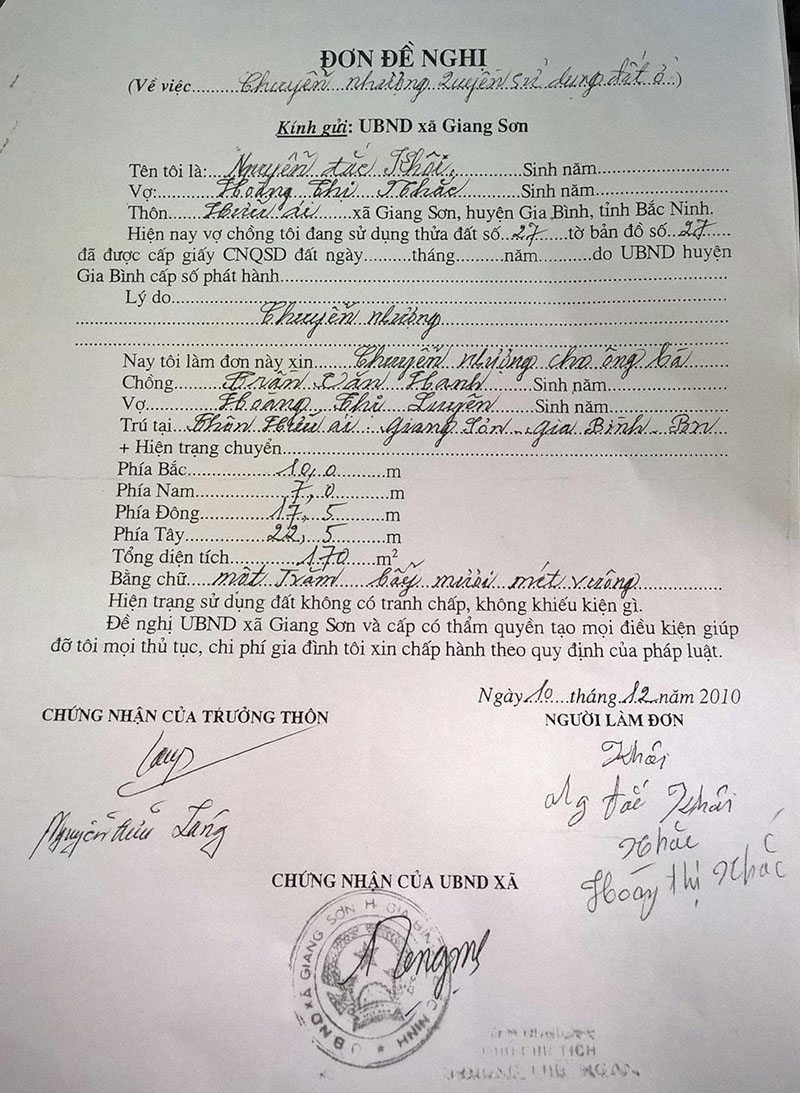 ĐƠN ĐỀ NGHỊ
(Về việc.........Chuyển nhượng quyền sử dụng đất ở..)
Kính gửi: UBND xã Giang Sơn
Tên tôi là:...Nguyễn Đắc Khải.........Sinh năm....................
Vợ:.........Hoàng Thị Nhắc.........Sinh năm....................
Thôn.....Hữu ái.....xã Giang Sơn, huyện Gia Bình, tỉnh Bắc Ninh.
Hiện nay vợ chồng tôi đang sử dụng thửa đất số...27.....tờ bản đồ số...27
đã được cấp giấy CNQSD đất ngày.........tháng.........năm.........do UBND huyện
Gia Bình cấp số phát hành....................
Lý do....................
Chuyển nhượng
Nay tôi làm đơn này xin.......Chuyển nhượng cho ông bà
Chồng.........Trần Văn Hanh.........Sinh năm....................
Vợ.........Hoàng Thị Luyên.........Sinh năm....................
Trú tại...Thôn Hữu ái - Giang Sơn - Gia Bình - BN
+ Hiện trạng chuyển....................
Phía Bắc............10,0.........m
Phía Nam............7,0.........m
Phía Đông.........17,5.........m
Phía Tây............22,5.........m
Tổng diện tích.........170.........m²
Bằng chữ.....một Trăm bẩy mươi mét vuông....................
Hiện trạng sử dụng đất không có tranh chấp, không khiếu kiện gì.
Đề nghị UBND xã Giang Sơn và cấp có thẩm quyền tạo mọi điều kiện giúp
đỡ tôi mọi thủ tục, chi phí gia đình tôi xin chấp hành theo quy định của pháp luật.
Ngày.10....tháng.12..năm 2010
CHỨNG NHẬN CỦA TRƯỞNG THÔN
NGƯỜI LÀM ĐƠN
Khải
Ng đắc Khải
Nhắc
Hoàng thị Nhắc
Nguyễn Hữu Tăng
CHỨNG NHẬN CỦA UBND XÃ
UBND XÃ GIANG SƠN H. GIA BÌNH BẮC NINH